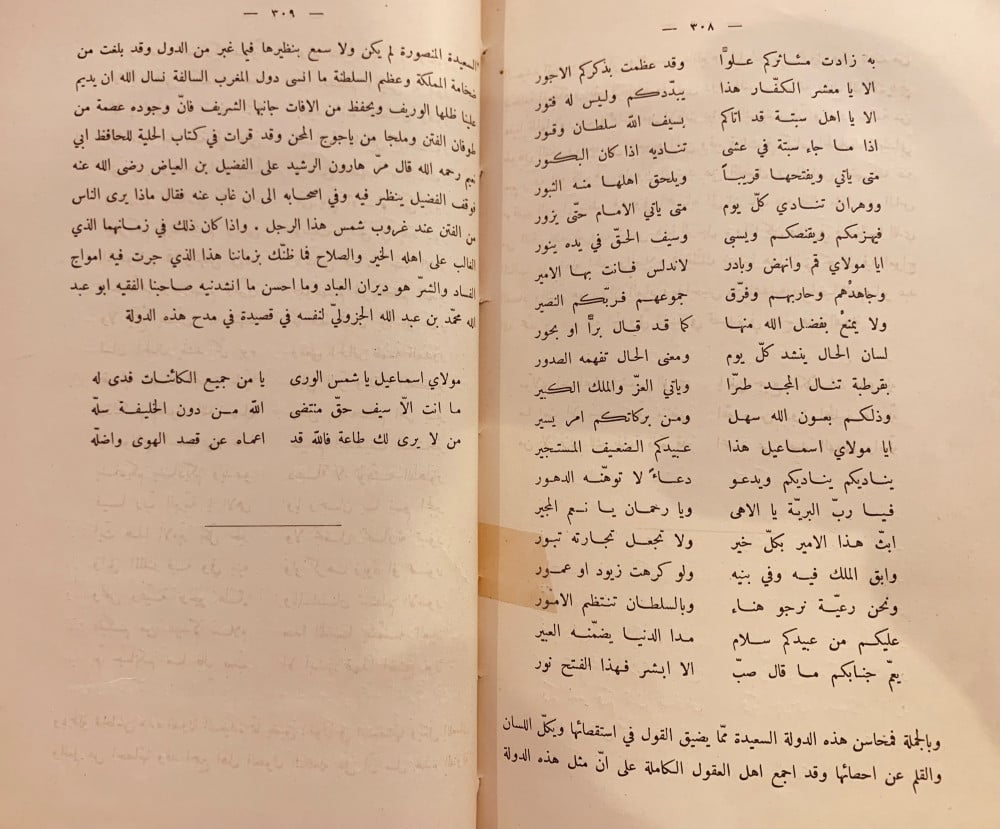 — ٣٠٨ —
به زادت مشائركم علوّاً وقد عظمت بذكركم الاجور
الا يا معشر الكفّار هذا يبدّدكم وليس له فتور
الا يا اهل سبتة قد اتاكم بسيف الله سلطان وقور
اذا ما جاء سبتة في عشى تناديه اذا كان البكور
متى ياتي ويفتحها قريباً ويلحق اهلها منه الثبور
ووهران تنادي كلّ يوم متى ياتي الامام حتّى يزور
فيهزمكم ويقنصكم ويسبى وسيف الحقّ في يده ينور
ايا مولاي قم وانهض وبادر لاندلس فانت بها الامير
وجاهدْهم وحاربهم وفرّق جموعهم فربّكم النصير
ولا يمنعْ بفضل الله منها كما قد قال برّاً او بحور
لسان الحال ينشد كلّ يوم ومعنى الحال تفهمه الصدور
بقرطبة تنال المجد طرّا وياتي العزّ والملك الكبير
وذلكم بعون الله سهل ومن بركاتكم امر يسير
ايا مولاي اسماعيل هذا عبيدكم الضعيف المستجير
يناديكم يناديكم ويدعو دعاءً لا توهّنه الدهور
فيا ربّ البريّة يا الاهى ويا رحمان يا نعم المجير
ابثّ هذا الامير بكلّ خير ولا تجعل تجارته تبور
وابق الملك فيه وفي بنيه ولو كرهت زيود او عمور
ونحن رعيّة نرجو هناء وبالسلطان تنتظم الامور
عليكم من عبيدكم سلام مدا الدنيا يضمّنه العبير
يعمّ جنابكم ما قال صبّ الا ابشر فهذا الفتح نور
وبالجملة فمحاسن هذه الدولة السعيدة ممّا يضيق القول في استقصائها ويكلّ اللسان
والقلم عن احصائها وقد اجمع اهل العقول الكاملة على انّ مثل هذه الدولة
— ٣٠٩ —
السعيدة المنصورة لم يكن ولا سمع بنظيرها فيما غبر من الدول وقد بلغت من
ضخامة المملكة وعظيم السلطنة ما انسى دول المغرب السالفة نسال الله ان يديم
علينا ظلها الوريف ويحفظ من الافات جانبها الشريف فانّ وجوده عصمة من
طوفان الفتن وملجا من ياجوج المحن وقد قرات في كتاب الحلية للحافظ ابي
نعيم رحمه الله قال مرّ هارون الرشيد على الفضيل بن العياض رضى الله عنه
فوقف الفضيل ينظر فيه وفي اصحابه الى ان غاب عنه فقال ماذا يرى الناس
من الفتن عند غروب شمس هذا الرجل . واذا كان ذلك في زمانهما الذي
الغالب على اهله الخير والصلاح فما ظنّك بزماننا هذا الذي جرت فيه امواج
الفساد والشر هو ديران العباد وما احسن ما انشدنيه صاحبنا الفقيه ابو عبد
الله محمّد بن عبد الله الجزوليّ لنفسه في قصيدة في مدح هذه الدولة
مولاي اسماعيل يا شمس الورى يا من جميع الكائنات فدى له
ما انت الّا سيف حقّ منتضى الله من دون الخليفة سلّه
من لا يرى لك طاعة فالله قد اعماه عن قصد الهوى واضلّه